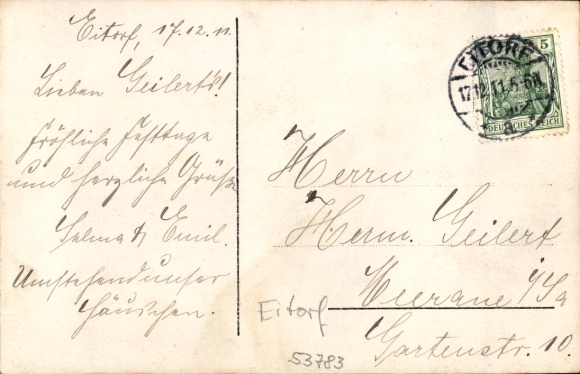 Eitorf, 17.12.11.
Lieben Geilert's!
Fröhliche Festtage
und herzliche Grüße
Selma & Emil.
Umstehend unser
Häuschen.
EITORF
17.12.11.5-6N.
a
5
DEUTSCHES REICH
Herrn
Herm. Geilert
Meerane i/Sa
Gartenstr. 10.
Eitorf
53783